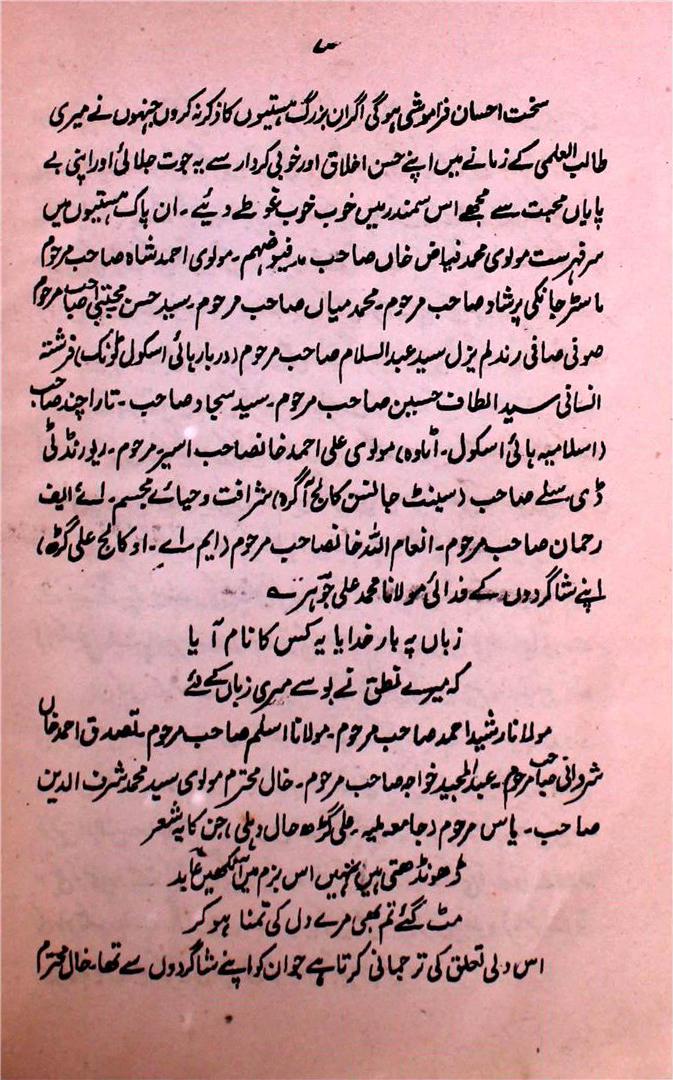 ۷
سخت احسان فراموشی ہوگی اگر ان بزرگ ہستیوں کا ذکر نہ کروں جنہوں نے میری
طالب العلمی کے زمانے میں اپنے حسن اخلاق اور خوبی کردار سے یہ جوت جلائی اور اپنی بے
پایاں محبت سے مجھے اس سمندر میں خوب خوب غوطے دیئے۔ ان پاک ہستیوں میں
سر فہرست مولوی محمد فیاض خاں صاحب مد فیوضہم۔ مولوی احمد شاہ صاحب مرحوم
ماسٹر جانکی پرشاد صاحب مرحوم۔ محمد میاں صاحب مرحوم۔ سید حسن مجتبیٰ صاحب مرحوم
صوفی صافی رند لم یزل سید عبدالسلام صاحب مرحوم (دربار ہائی اسکول ٹونک) فرشتہ
انسانی سید الطاف حسین صاحب مرحوم۔ سید سجاد صاحب۔ تارا چند صاحب
(اسلامیہ ہائی اسکول۔ اٹاوہ) مولوی علی احمد خانصاحب اسیر مرحوم۔ ریورنڈ ٹی
ڈی سلے صاحب (سینٹ جانسن کالج آگرہ) شرافت و حیائے مجسم۔ اے ایف
رحمان صاحب مرحوم۔ انعام اللہ خانصاحب مرحوم (ایم اے۔ او کالج علی گڑھ)
اپنے شاگردوں کے فدائی مولانا محمد علی جوہر ؎
زباں پہ بار خدایا یہ کس کا نام آیا
کہ میرے نطق نے بوسے میری زباں کے لئے
مولانا رشید احمد صاحب مرحوم۔ مولانا اسلم صاحب مرحوم۔ تصدق احمد خاں
شروانی صاحب مرحوم۔ عبدالمجید خواجہ صاحب مرحوم۔ خال محترم مولوی سید محمد شرف الدین
صاحب۔ یاس مرحوم (جامعہ ملیہ۔ علی گڑھ حال دہلی) جن کا یہ شعر
ڈھونڈھتی ہیں تمہیں اس بزم میں آنکھیں عابد
مٹ گئے تم بھی مرے دل کی تمنا ہو کر
اس دلی تعلق کی ترجمانی کرتا ہے جو ان کو اپنے شاگردوں سے تھا۔ خال محترم